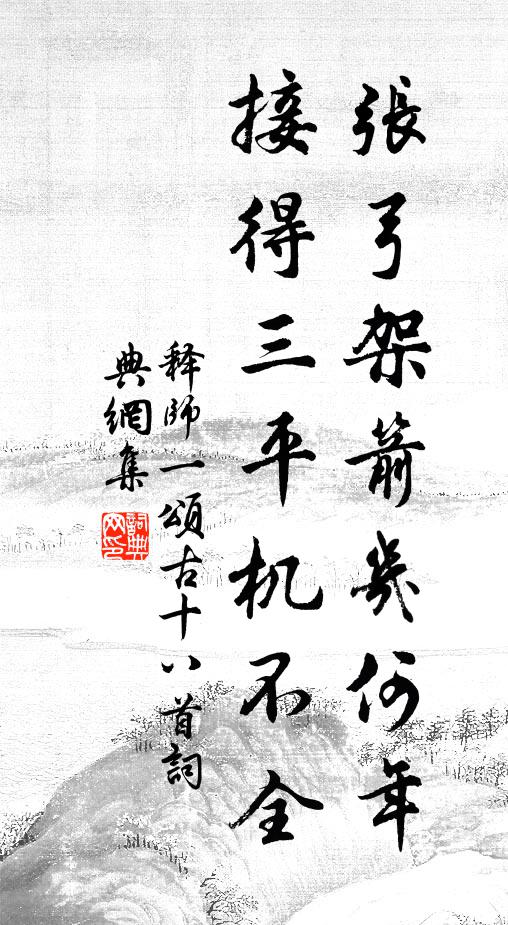 張弓架箭幾何年
接得三平机不全
释師一頌古十八首詞
典網集
詞典
网印